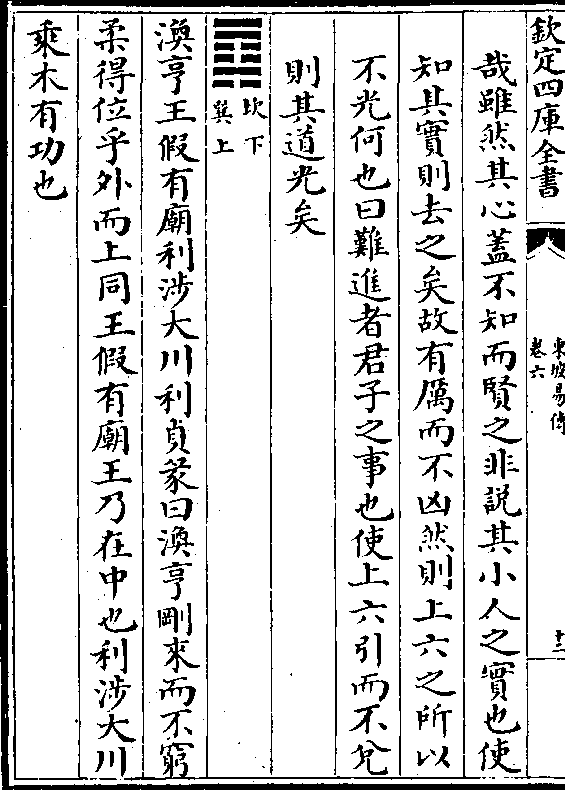 欽定四庫全書
東坡易傳
卷六
十二
哉雖然其心蓋不知而賢之非説其小人之實也使
知其實則去之矣故有厲而不凶然則上六之所以
不光何也曰難進者君子之事也使上六引而不兊
則其道光矣
坎下
巽上
渙亨王假有廟利涉大川利貞彖曰渙亨剛來而不窮
柔得位乎外而上同王假有廟王乃在中也利涉大川
乘木有功也